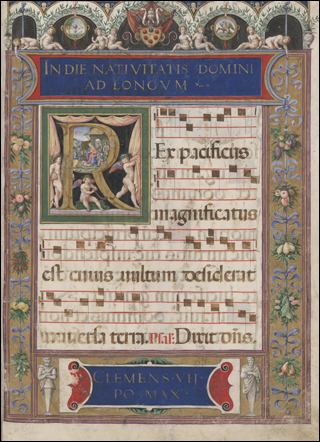 IN DIE NATIVITATIS DOMINI
AD LONGVM
REx pacificus
magnificatus
est cuius uultum desiderat
uniuersa terra. Psal: Dixit dñs.
CLEMENS·VII·
PO·MAX·